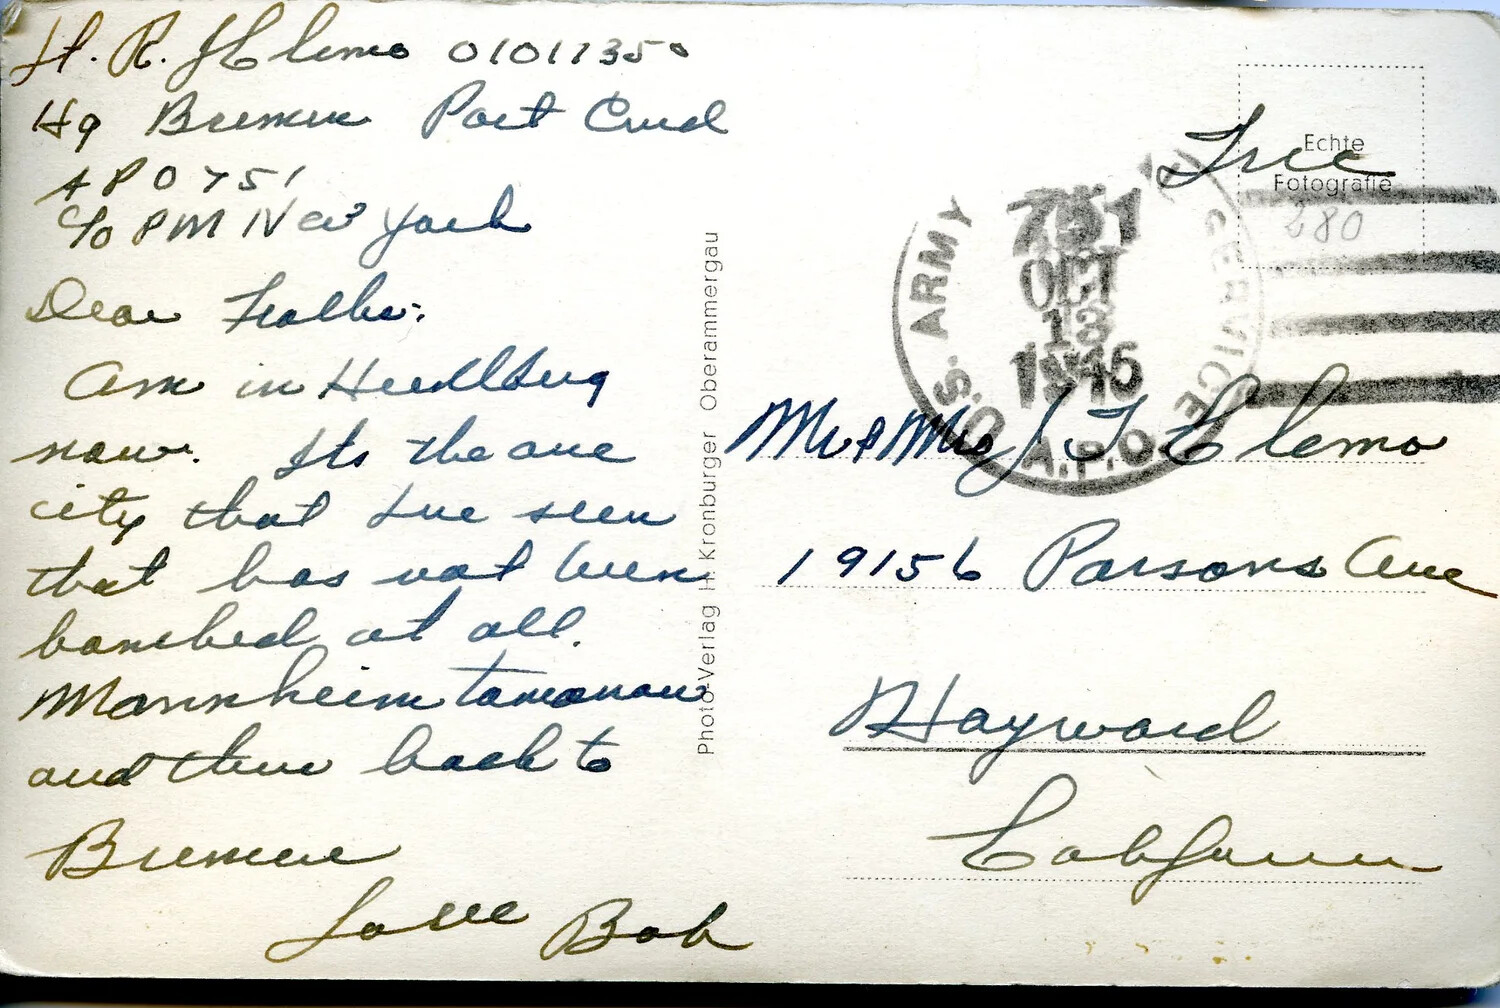 H. R. Clemo 01017350
Hq Bremen Port Cmd
APO 751
c/o PM New York
Dear Folks:
Am in Heidlburg
now. Its the one
city that I've seen
that has not been
bombed at all.
Mannheim tomorrow
and then back to
Bremen
Love Bob
Photo-Verlag H. Kronburger Oberammergau
Free
Echte
Fotografie
280
U.S. ARMY POSTAL SERVICE
751
OCT
13
1945
A.P.O.
Mr & Mrs J T Clemo
19156 Parsons Ave
Hayward
California